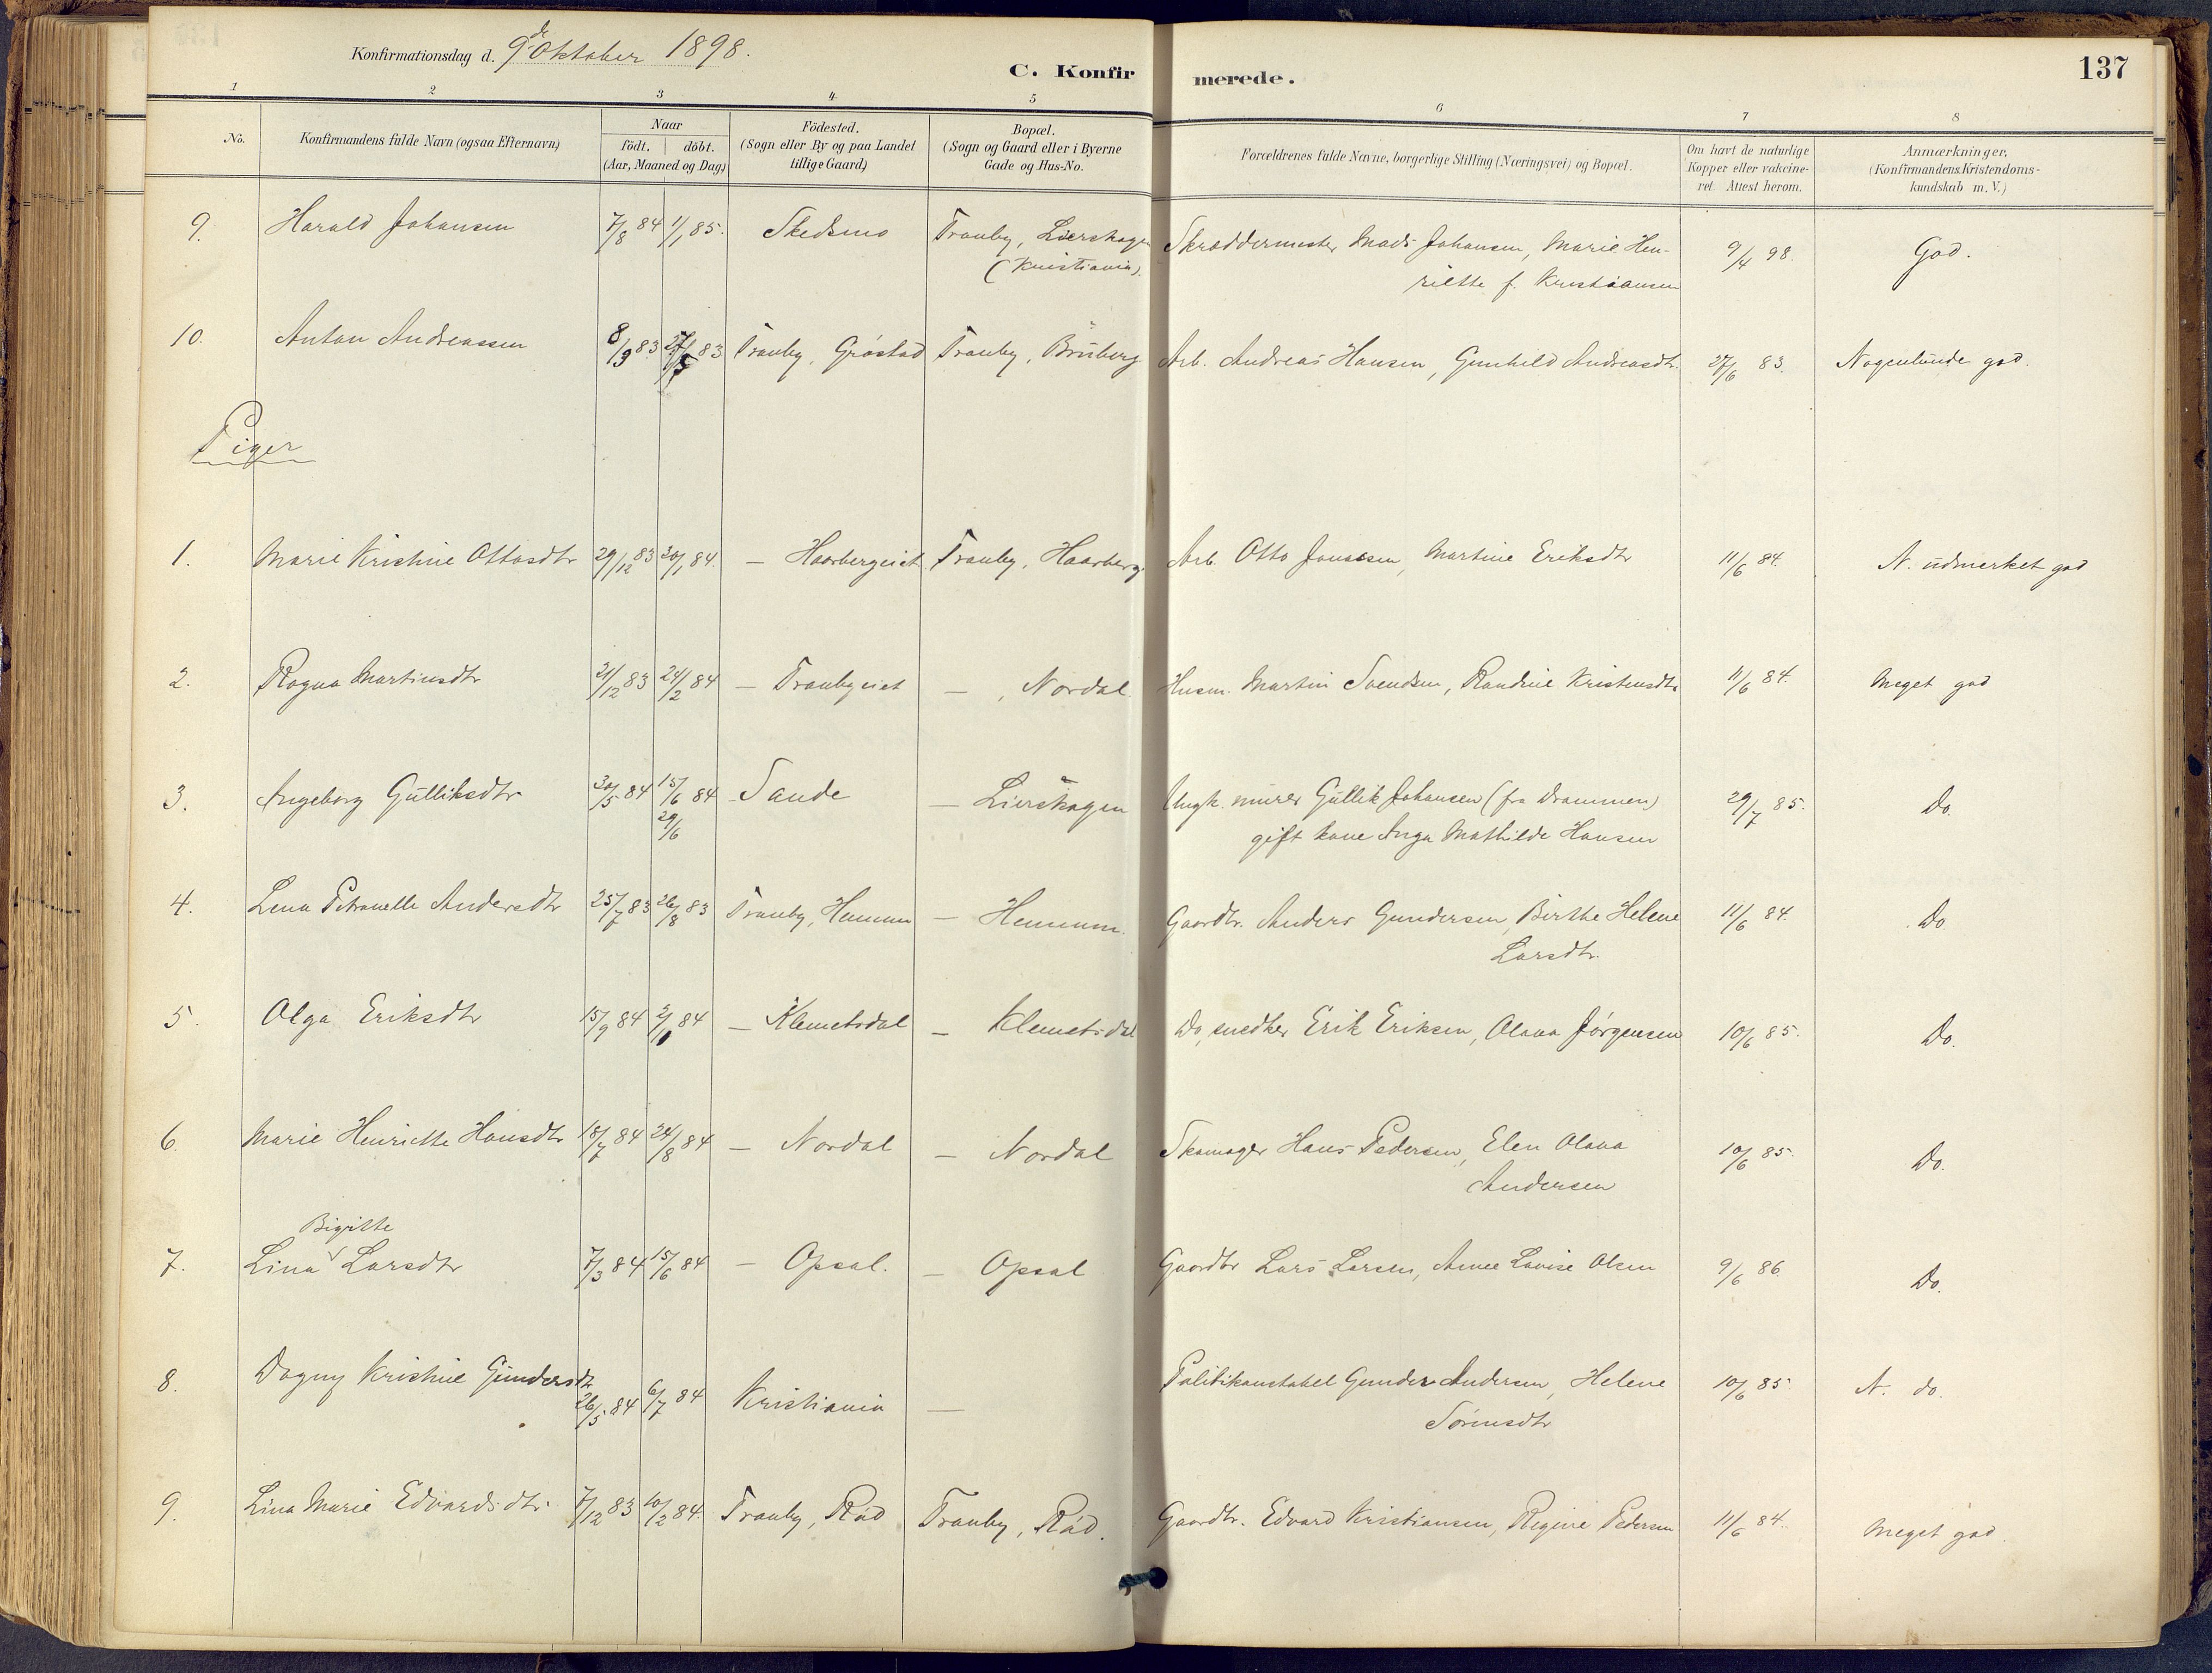 Konfirmationsdag d. 9de Oktober 1898.
C. Konfirmerede.
137
1 2 3 4 5 6 7 8
No.
Konfirmandens fulde Navn (ogsaa Efternavn)
Naar
födt. döbt.
(Aar, Maaned og Dag)
Födested.
(Sogn eller By og paa Landet
tillige Gaard)
Bopæl.
(Sogn og Gaard eller i Byerne
Gade og Hus-No.
Forældrenes fulde Navne, borgerlige Stilling (Næringsvei) og Bopæl.
Om havt de naturlige
Kopper eller vakcine-
ret. Attest herom.
Anmærkninger,
(Konfirmandens Kristendoms-
kundskab m. V.)
9. Harald Johansen 7/8 84 1/1 85. Skedsmo Tranby, Lierskogen Skræddermester Mads Johansen, Marie Hen- 9/4 98. God.
(Kristiania). riette f. Kristiansen
10. Anton Andreassen 8/3 83 27/5 83 Tranby, Gröstad Tranby, Bruberg Arb. Andreas Hansen, Gunhild Andreasdtr. 27/6 83. Nogenlunde god.
Piger
1. Marie Kristine Ottosdtr 29/12 83 20/1 84. — Haarbergeiet Tranby, Haarberg Arb. Otto Jonassen, Martine Eriksdtr 11/6 84. N. udmerket god
2. Ragna Martinsdtr 21/12 83 24/2 84 — Tranbyeiet — , Nordal Husm. Martin Svendsen, Randine Kristensdtr 11/6 84. Meget god
3. Ingeborg Gulliksdtr 30/5 84 15/6 84 Sande — Lierskogen Ungk. murer Gullik Johansen (fra Drammen) 29/7 85. Do.
29/6 gift kone Inga Mathilde Hansen
4. Lena Petronelle Andersdtr 25/7 83 26/8 83 Tranby, Hennum — Hennum. Gaardbr. Anders Gundersen, Birthe Helene 11/6 84. Do
Larsdtr.
5. Olga Eriksdtr 15/9 84 2/10 84 — Klemetsdal — Klemetsdal Do, snedker Erik Eriksen, Olava Jörgensen 10/6 85. Do.
6. Marie Henriette Hansdtr 18/7 84 24/8 84 — Nordal — Nordal Skomager Hans Pedersen, Elen Olava 10/6 85. Do.
Andersen
Bigitte
7. Lina Larsdtr 7/3 84 15/6 84 — Opsal. — Opsal Gaardbr Lars Larsen, Anne Lovise Olsen 9/6 86 Do.
8. Dagny Kristine Gundersdtr 26/5 84 6/7 84 Kristiania — Politikonstabel Gunder Andersen, Helene 10/6 85. N. do.
Sörensdtr
9. Lina Marie Edvardsdtr. 7/12 83 10/2 84. Tranby, Röd Tranby, Röd. Gaardbr. Edvard Kristiansen, Regine Pedersen 11/6 84. Meget god.